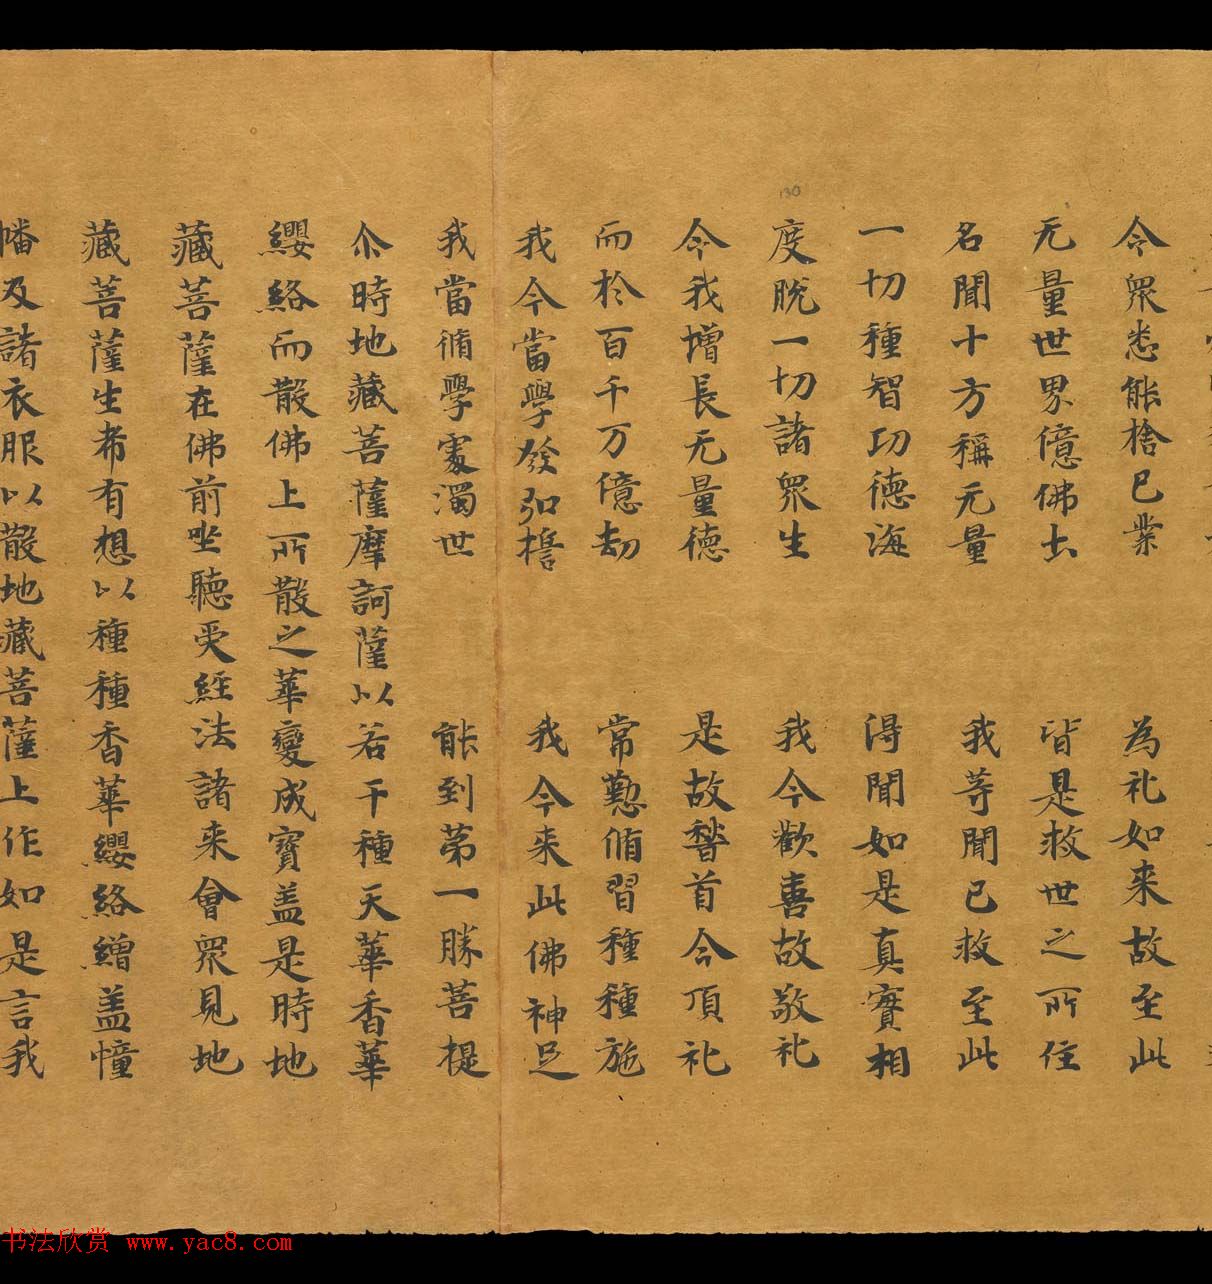 令衆悉能捨已業 為礼如来故至此
无量世界億佛土 皆是救世之所住
名聞十方稱无量 我等聞已救至此
一切種智功德海 得聞如是真實相
度脫一切諸衆生 我今歡喜故敬礼
今我增長无量德 是故稽首今頂礼
而於百千万億劫 常懃脩習種種施
我今當學發弘誓 我今来此佛神足
我當脩學處濁世 能到第一勝菩提
尒時地藏菩薩摩訶薩以若干種天華香華
纓絡而散佛上所散之華變成寶盖是時地
藏菩薩在佛前坐聽受經法諸来會衆見地
藏菩薩生希有想以種種香華纓絡繒盖幢
幡及諸衣服以散地藏菩薩上作如是言我
130
书法欣赏 www.yac8.com